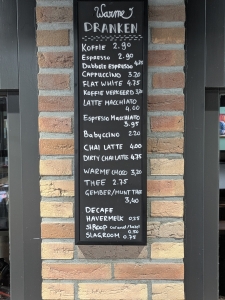 Warme
DRANKEN
KOFFIE 2.90
Espresso 2.90
Dubbele Espresso 4.75
CAPPUCCINO 3.20
FLAT WHITE 4.75
KOFFIE VERKEERD 3.20
LATTE MACCHIATO
4.00
ESPRESSO MACCHIATO
3.95
BABYCCINO 2.20
CHAI LATTE 4.00
DIRTY CHAI LATTE 4.75
WARME CHOCO 3,20
THEE 2.75
GEMBER/MUNT THEE
3,40
DECAFE
HAVERMELK 0.55
SIROOP
0.50
SLAGROOM 0.75